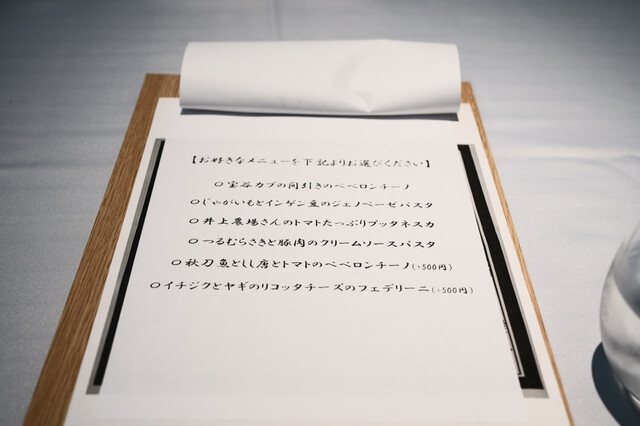 【お好きなメニューを下記よりお選びください】
○宝谷カブの間引きのペペロンチーノ
○じゃがいもとインゲン豆のジェノベーゼパスタ
○井上農場さんのトマトたっぷりプッタネスカ
○つるむらさきと豚肉のクリームソースパスタ
○秋刀魚としし唐とトマトのペペロンチーノ(+500円)
○イチジクとヤギのリコッタチーズのフェデリーニ(+500円)